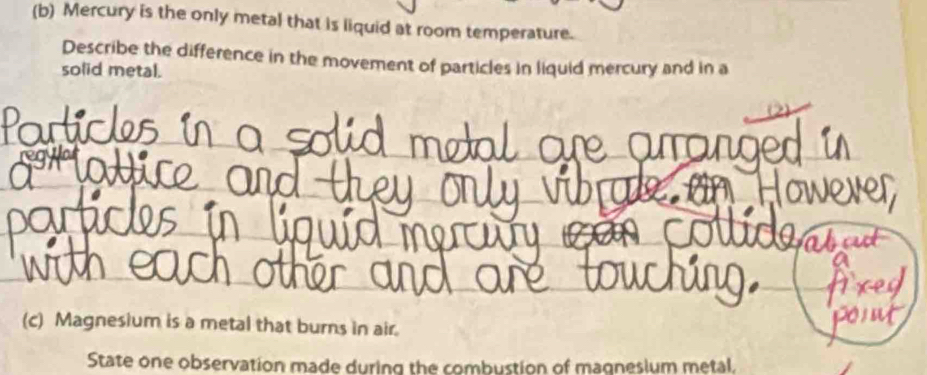 (b) Mercury is the only metal that is liquid at room temperature.
Describe the difference in the movement of particles in liquid mercury and in a
solid metal.
(2)
Particles in a solid metal are arranged in
a regular lattice and they only vibrate. However,
particles in liquid mercury collide
with each other and are touching.
about
a
fixed
point
(c) Magnesium is a metal that burns in air.
State one observation made during the combustion of magnesium metal.